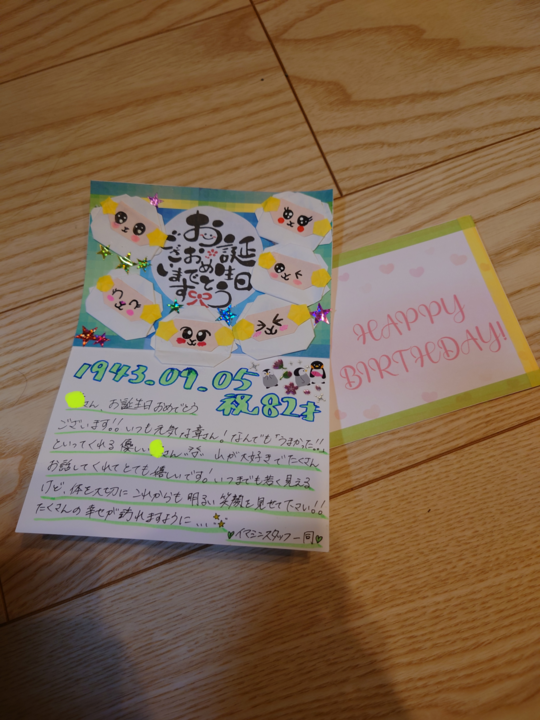 お誕生日
おめでとう
ございます
1943.09.05
祝82才
さん、お誕生日おめでとう
ございます!!いつも元気な幸さん!なんでも「うまかった!!」
といってくれる優しい さん。 れが大好きでたくさん
お話してくれてとても嬉しいです!いつまでも若く見える
けど、体を大切にこれからも明るい笑顔を見せて下さい!!
たくさんの幸せが訪れますように...
イマジンスタッフ一同
HAPPY
BIRTHDAY!